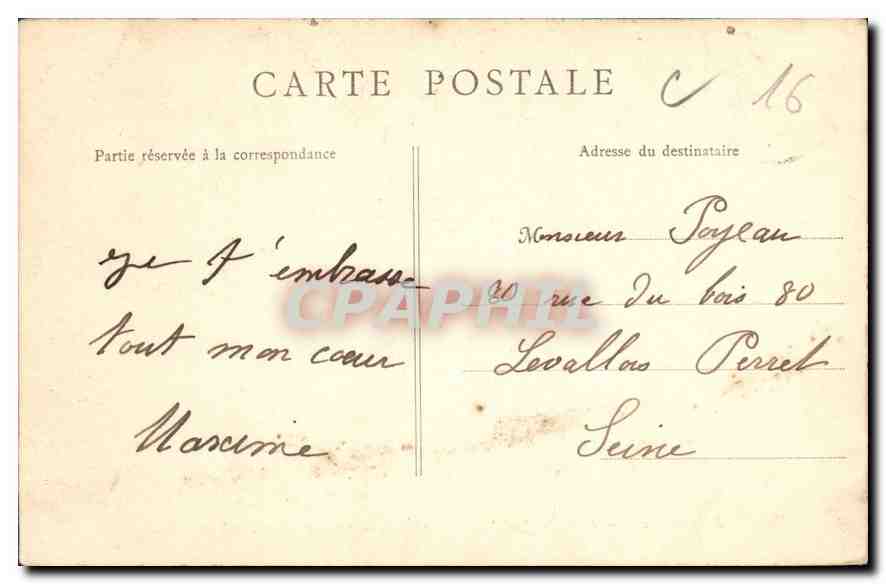 CARTE POSTALE
C 16
Partie réservée à la correspondance
Adresse du destinataire
Je t'embrasse
tout mon cœur
Maxime
Monsieur Poyeau
80 rue du bois 80
Levallois Perret
Seine
CPAPHIL